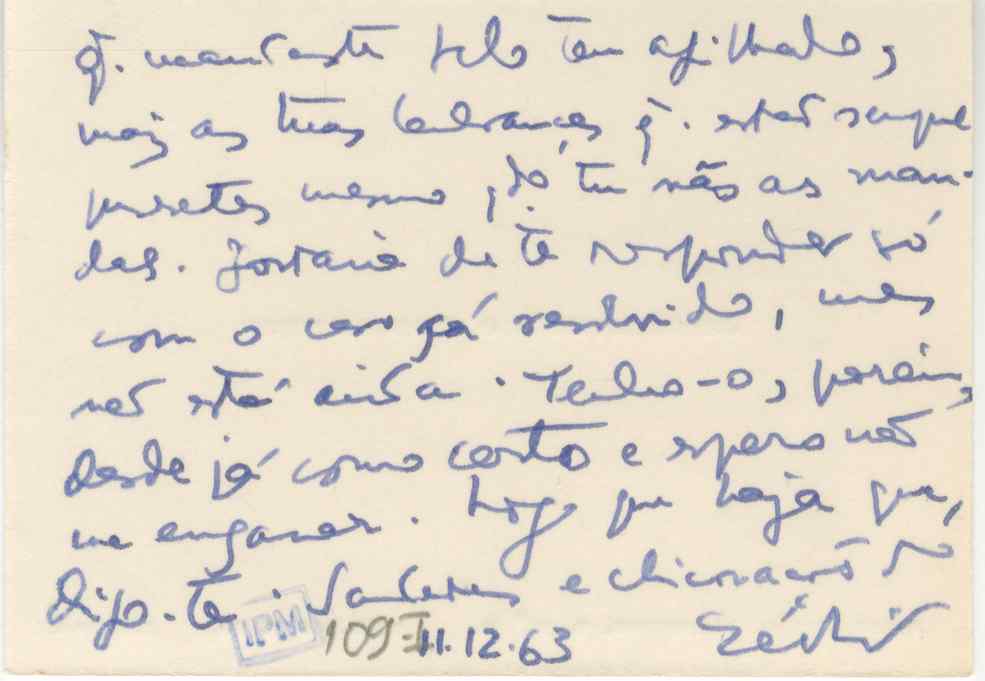 q̃. mandaste pelo teu afilhado,
mas as tuas lembranças q̃. estão sempre
presentes mesmo qdo. tu não as man-
das. Gostaria de te responder só
com o caso já resolvido, mas
não está ainda. Tenho-o, porém,
desde já como certo e espero não
me enganar. Logo que haja que,
digo-te. Saudades e
IPM 109-I 11.12.63